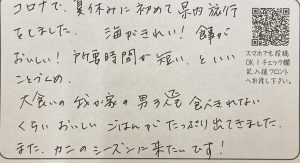 コロナで、夏休みに初めて県内旅行
をしました。海がきれい!食事が
おいしい!所要時間が短い、といい
ことづくめ。
大食いの我が家の男3人を食べきれない
くらいおいしいごはんがたっぷり出てきました。
また、カニのシーズンに来たいです!
スマホでも投稿
OK!チェック欄
記入後フロント
へお渡し下さい。